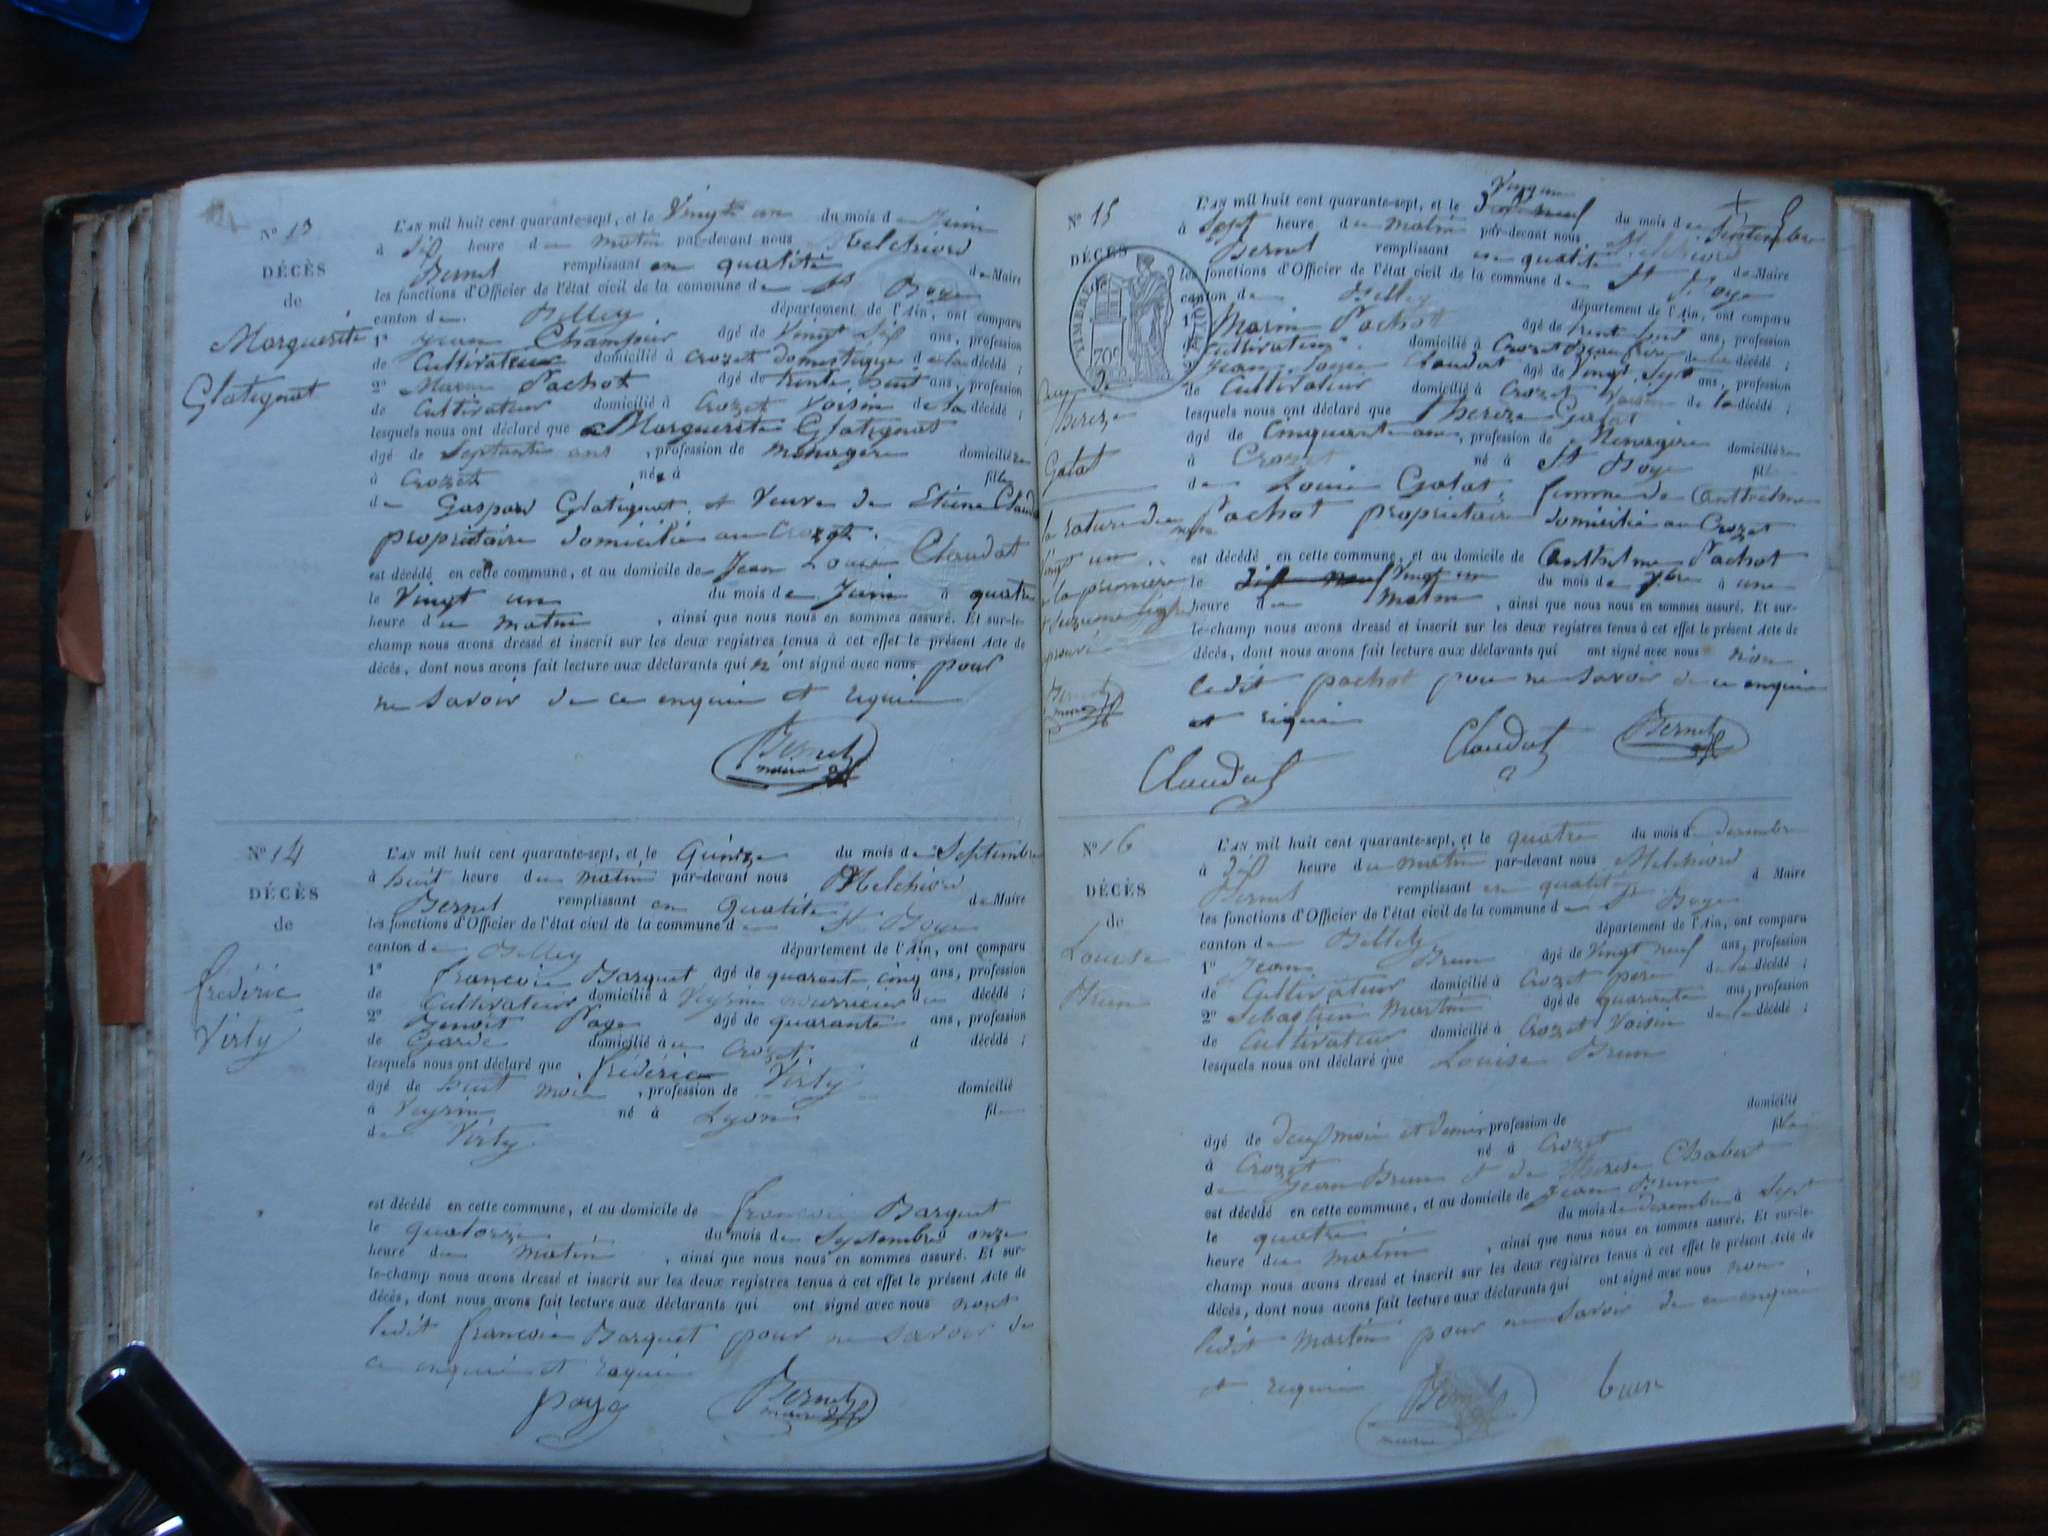 N° 13
DÉCÈS
de
Marguerite
Glatignat
L'AN mil huit cent quarante-sept, et le Vingt un du mois de Juin
à dix heure du matin par-devant nous Melchiord
Bernet remplissant en qualité de Maire
les fonctions d'Officier de l'état civil de la commune de St Boys
canton de Belley département de l'Ain, ont comparu
1° Jean Champier âgé de Vingt dix ans, profession
de Cultivateur domicilié à Crozet domestique de la décédé ;
2° Marin Pachot âgé de trente huit ans, profession
de Cultivateur domicilié à Crozet Voisin de la décédé ;
lesquels nous ont déclaré que Marguerite Glatignat
âgé de Septante ans , profession de menagère domicilié
à Crozet né à fille
de Gaspard Glatignat et Veuve de Etiene Claudat
propriétaire domicilié au Crozet.
est décédé en cette commune, et au domicile de Jean Louis Claudat
le Vingt un du mois de Juin à quatre
heure du matin , ainsi que nous nous en sommes assuré. Et sur-le-
champ nous avons dressé et inscrit sur les deux registres tenus à cet effet le présent Acte de
décès, dont nous avons fait lecture aux déclarants qui n'ont signé avec nous pour
ne savoir de ce enquis et requis
Bernet
maire
N° 14
DÉCÈS
de
frédéric
Virty
L'AN mil huit cent quarante-sept, et le Quinze du mois de Septembre
à huit heure du matin par-devant nous Melchiord
Bernet remplissant en Qualité de Maire
les fonctions d'Officier de l'état civil de la commune de St Boys
canton de Belley département de l'Ain, ont comparu
1° francois Barquet âgé de quarant cinq ans, profession
de Cultivateur domicilié à Veyrin nourricier du décédé ;
2° Benoit Page âgé de quarante ans, profession
de Garde domicilié à Crozet. d décédé ;
lesquels nous ont déclaré que frédéric Virty
âgé de huit mois , profession de domicilié
à Veyrin né à Lyon fil
de Virty
est décédé en cette commune, et au domicile de francois Barquet
le quatorze du mois de Septembre à onze
heure du matin , ainsi que nous nous en sommes assuré. Et sur-
le-champ nous avons dressé et inscrit sur les deux registres tenus à cet effet le présent Acte de
décès, dont nous avons fait lecture aux déclarants qui ont signé avec nous non
ledit francois Barquet pour ne savoir de
ce enquis et requis
page
Bernet
maire
N° 15
DÉCÈS
TIMBRE ROYAL
70c
de
thereze
Galat
la rature de
Vingt un
a la première
et seizieme ligne
Bernet
maire
L'AN mil huit cent quarante-sept, et le Vingt un du mois de Septembre
à Sept heure du matin par-devant nous Melchiord
Bernet remplissant en qualité de Maire
les fonctions d'Officier de l'état civil de la commune de St Boys
canton de Belley département de l'Ain, ont comparu
1° Marin Pachot âgé de trente huit ans, profession
de Cultivateur domicilié à Crozet Beaufrère de la décédé ;
2° Jean Louis Claudat âgé de Vingt Sept ans, profession
de Cultivateur domicilié à Crozet Voisin de la décédé ;
lesquels nous ont déclaré que thereze Galat
âgé de Cinquante ans, profession de Menagère domicilié
à Crozet né à St Boys fil
de Louis Galat, femme de Canthelme
Pachot propriétaire domicilié au Crozet
est décédé en cette commune, et au domicile de Canthelme Pachot
le dix neuf Vingt un du mois de 7bre à une
heure du Matin , ainsi que nous nous en sommes assuré. Et sur-
le-champ nous avons dressé et inscrit sur les deux registres tenus à cet effet le présent Acte de
décès, dont nous avons fait lecture aux déclarants qui ont signé avec nous non
ledit pachot pour ne savoir de ce enquis
et requis
Claudat
Claudat
Bernet
N° 16
DÉCÈS
de
Louise
Brun
L'AN mil huit cent quarante-sept, et le quatre du mois de decembre
à dix heure du matin par-devant nous Melchiord
Bernet remplissant en qualité d Maire
les fonctions d'Officier de l'état civil de la commune de St Boys
canton de Belley département de l'Ain, ont comparu
1° Jean Brun âgé de Vingt neuf ans, profession
de Cultivateur domicilié à Crozet père de la décédé ;
2° Sebastien Martin âgé de quarante ans, profession
de Cultivateur domicilié à Crozet Voisin de la décédé ;
lesquels nous ont déclaré que Louise Brun
âgé de deux mois et demi profession de domicilié
à Crozet né à Crozet fille
de Jean Brun et de Therese Chabert
est décédé en cette commune, et au domicile de Jean Brun
le quatre du mois de decembre à Sept
heure du matin , ainsi que nous nous en sommes assuré. Et sur-le-
champ nous avons dressé et inscrit sur les deux registres tenus à cet effet le présent Acte de
décès, dont nous avons fait lecture aux déclarants qui ont signé avec nous non
ledit Martin pour ne savoir de ce enquis
et requis
Bernet
maire
brun